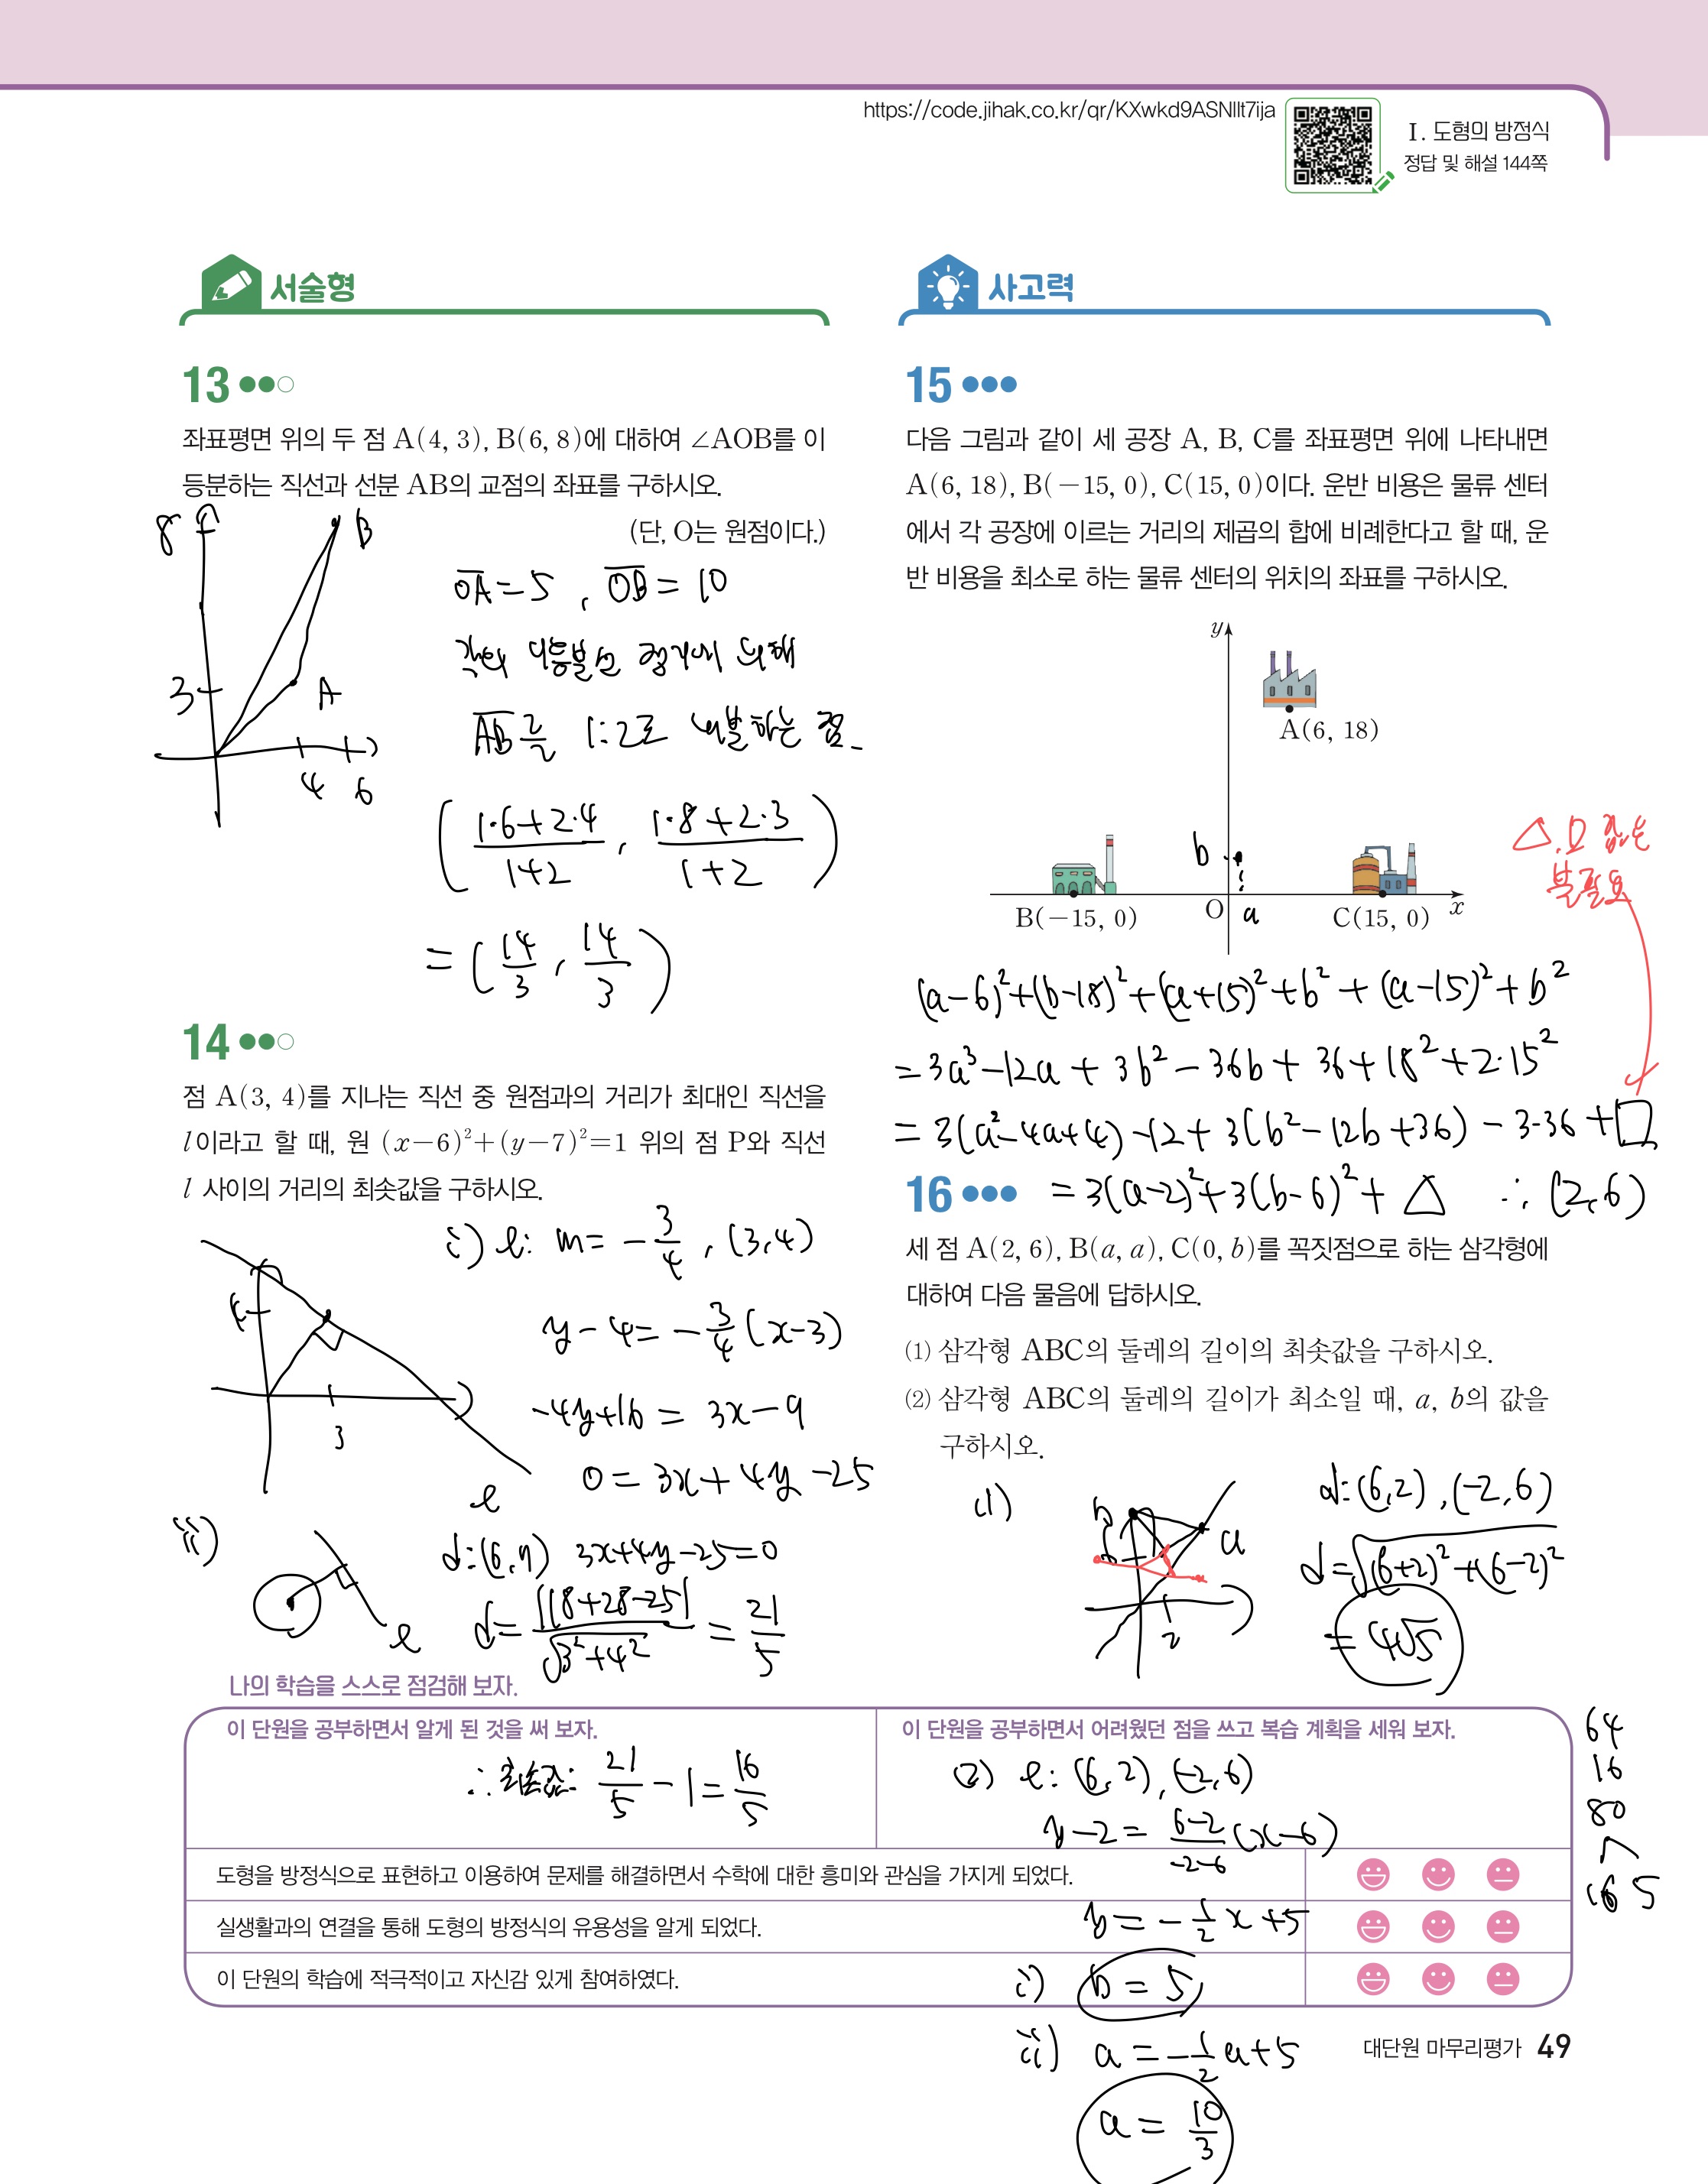 https://code.jihak.co.kr/qr/KXwkd9ASNIIt7ija
Ⅰ. 도형의 방정식
정답 및 해설 144쪽
서술형
13
좌표평면 위의 두 점 A(4, 3), B(6, 8)에 대하여 ∠AOB를 이
등분하는 직선과 선분 AB의 교점의 좌표를 구하시오.
(단, O는 원점이다.)
8
B
3
A
4 6
OA = 5, OB = 10
각의 이등분선 정리에 의해
AB를 1:2로 내분하는 점.
(1·6+2·4/1+2, 1·8+2·3/1+2)
= (14/3, 14/3)
14
점 A(3, 4)를 지나는 직선 중 원점과의 거리가 최대인 직선을
l이라고 할 때, 원 (x-6)²+(y-7)²=1 위의 점 P와 직선
l 사이의 거리의 최솟값을 구하시오.
4
3
l
i) l: m = -3/4, (3,4)
y-4 = -3/4(x-3)
-4y+16 = 3x-9
0 = 3x+4y-25
ii)
l
d: (6,7) 3x+4y-25=0
d = |18+28-25|/√3²+4² = 21/5
∴ 최솟값: 21/5 - 1 = 16/5
사고력
15
다음 그림과 같이 세 공장 A, B, C를 좌표평면 위에 나타내면
A(6, 18), B(-15, 0), C(15, 0)이다. 운반 비용은 물류 센터
에서 각 공장에 이르는 거리의 제곱의 합에 비례한다고 할 때, 운
반 비용을 최소로 하는 물류 센터의 위치의 좌표를 구하시오.
y
A(6, 18)
b
B(-15, 0)
O
a
C(15, 0)
x
△,□ 값은
불필요
(a-6)²+(b-18)²+(a+15)²+b²+(a-15)²+b²
= 3a³-12a+3b²-36b+36+18²+2·15²
= 3(a²-4a+4)-12+3(b²-12b+36)-3·36+□
= 3(a-2)²+3(b-6)²+△ ∴ (2,6)
16
세 점 A(2, 6), B(a, a), C(0, b)를 꼭짓점으로 하는 삼각형에
대하여 다음 물음에 답하시오.
⑴ 삼각형 ABC의 둘레의 길이의 최솟값을 구하시오.
⑵ 삼각형 ABC의 둘레의 길이가 최소일 때, a, b의 값을
구하시오.
(1)
a
2
d: (6,2), (-2,6)
d = √(6+2)²+(6-2)²
= 4√5
64
16
80
16 5
(2) l: (6,2), (-2,6)
y-2 = 6-2/-2-6(x-6)
y = -1/2x+5
i) b = 5
ii) a = -1/2a+5
a = 10/3
나의 학습을 스스로 점검해 보자.
이 단원을 공부하면서 알게 된 것을 써 보자.
이 단원을 공부하면서 어려웠던 점을 쓰고 복습 계획을 세워 보자.
도형을 방정식으로 표현하고 이용하여 문제를 해결하면서 수학에 대한 흥미와 관심을 가지게 되었다.
실생활과의 연결을 통해 도형의 방정식의 유용성을 알게 되었다.
이 단원의 학습에 적극적이고 자신감 있게 참여하였다.
대단원 마무리평가 49